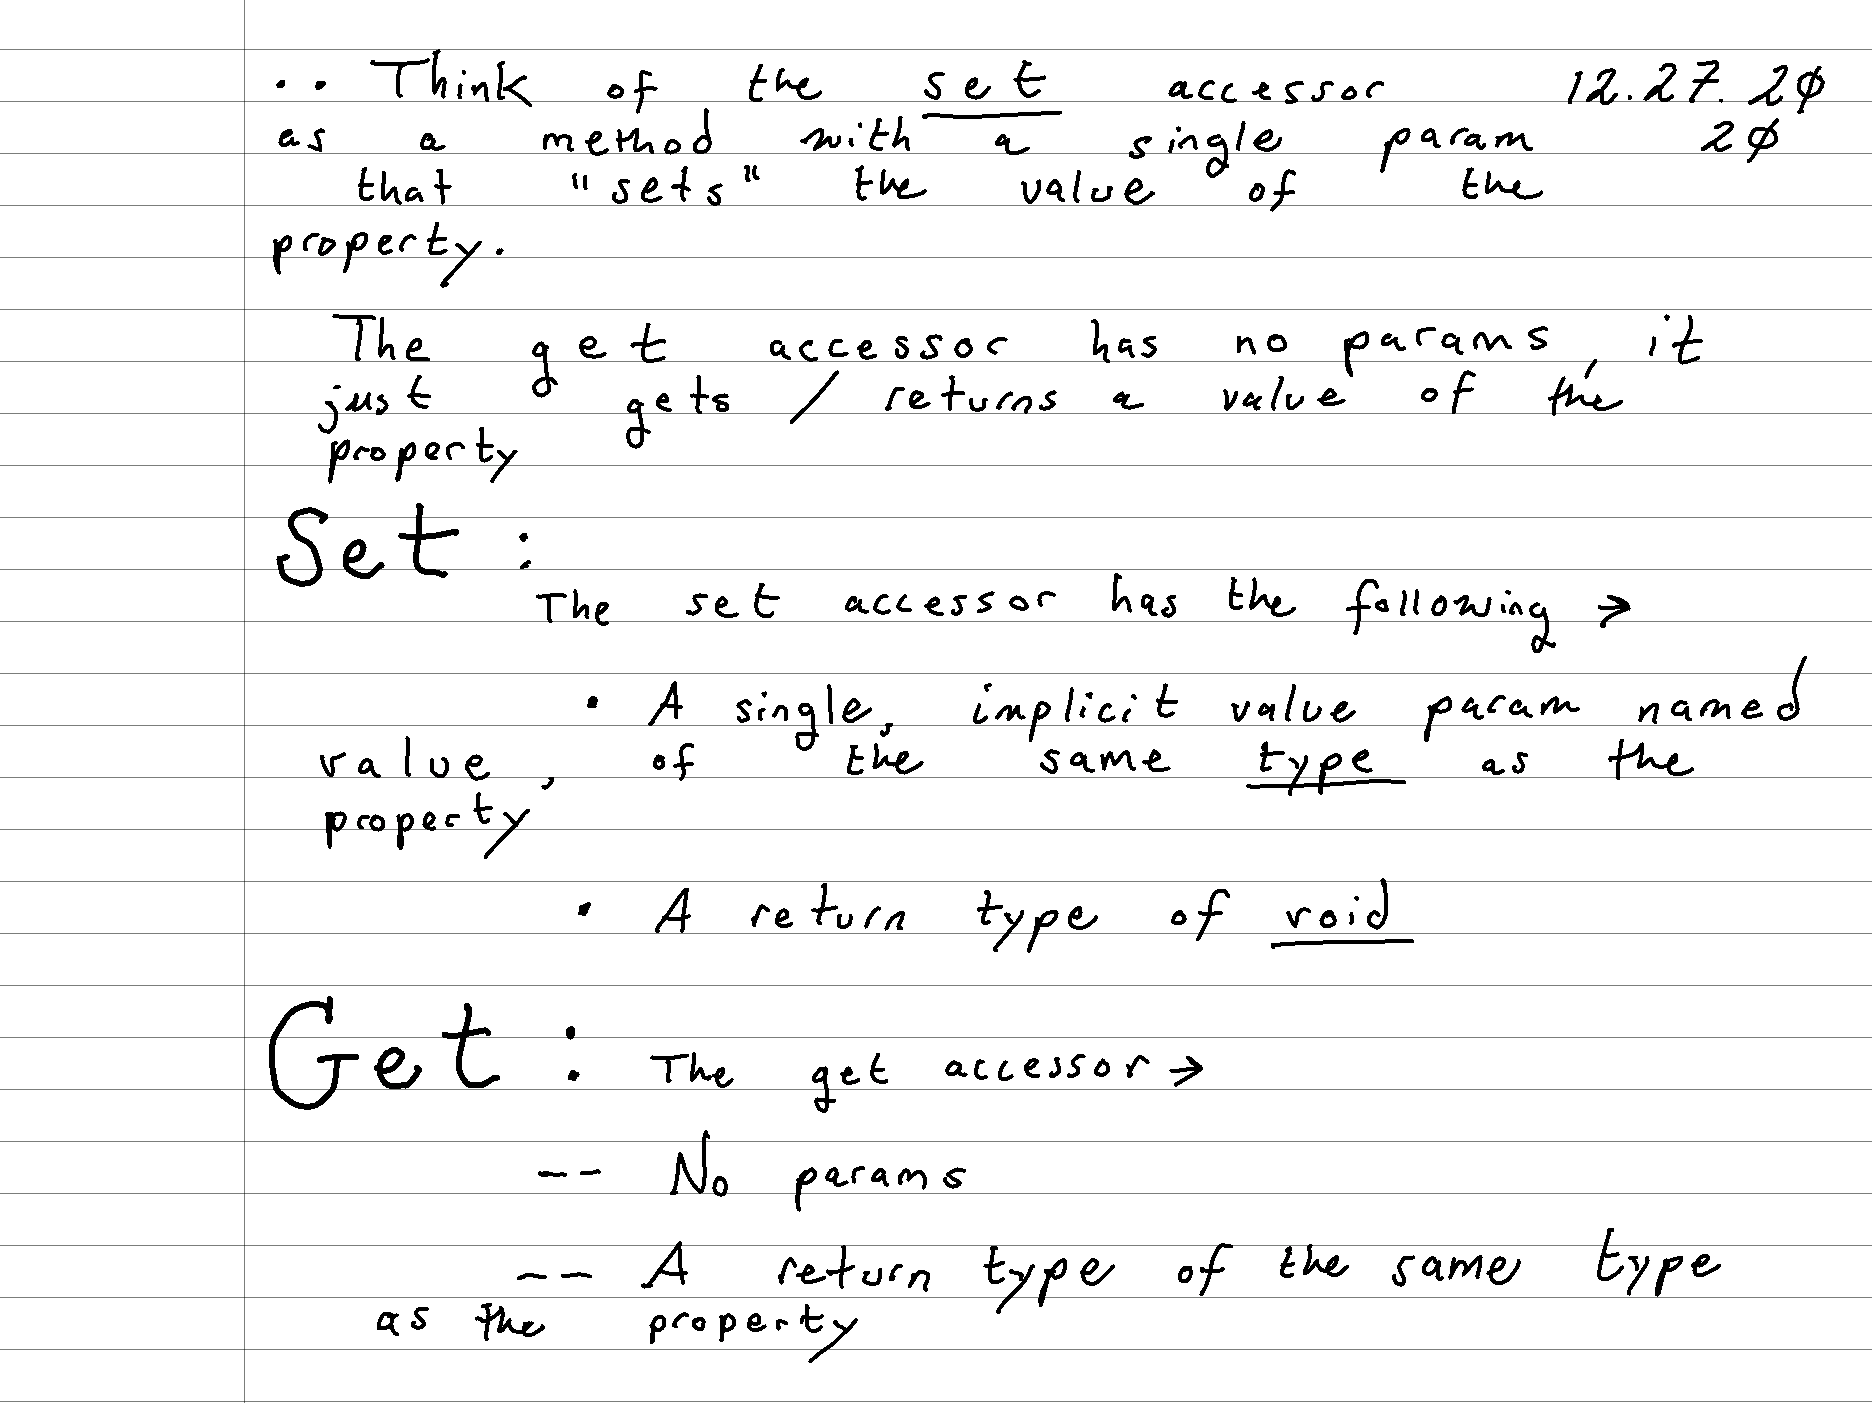 ·· Think of the set accessor 12.27.2φ
as a method with a single param 2φ
that "sets" the value of the
property.
The get accessor has no params, it
just gets / returns a value of the
property
Set :
The set accessor has the following →
· A single, implicit value param named
value, of the same type as the
property
· A return type of void
Get : The get accessor →
-- No params
-- A return type of the same type
as the property